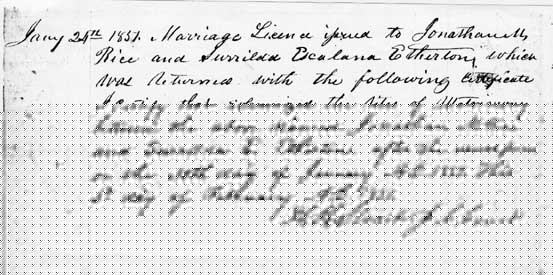 Jany 24th 1857. Marriage Licence issued to Jonathan M
Rice and Surrilda Escalana Etherton, which
was returned with the following Certificate
I certify that solemnized the rites of Matrimony
between the above named Jonathan M Rice
and Surrilda E Etherton
on the day of January AD This
day of February AD